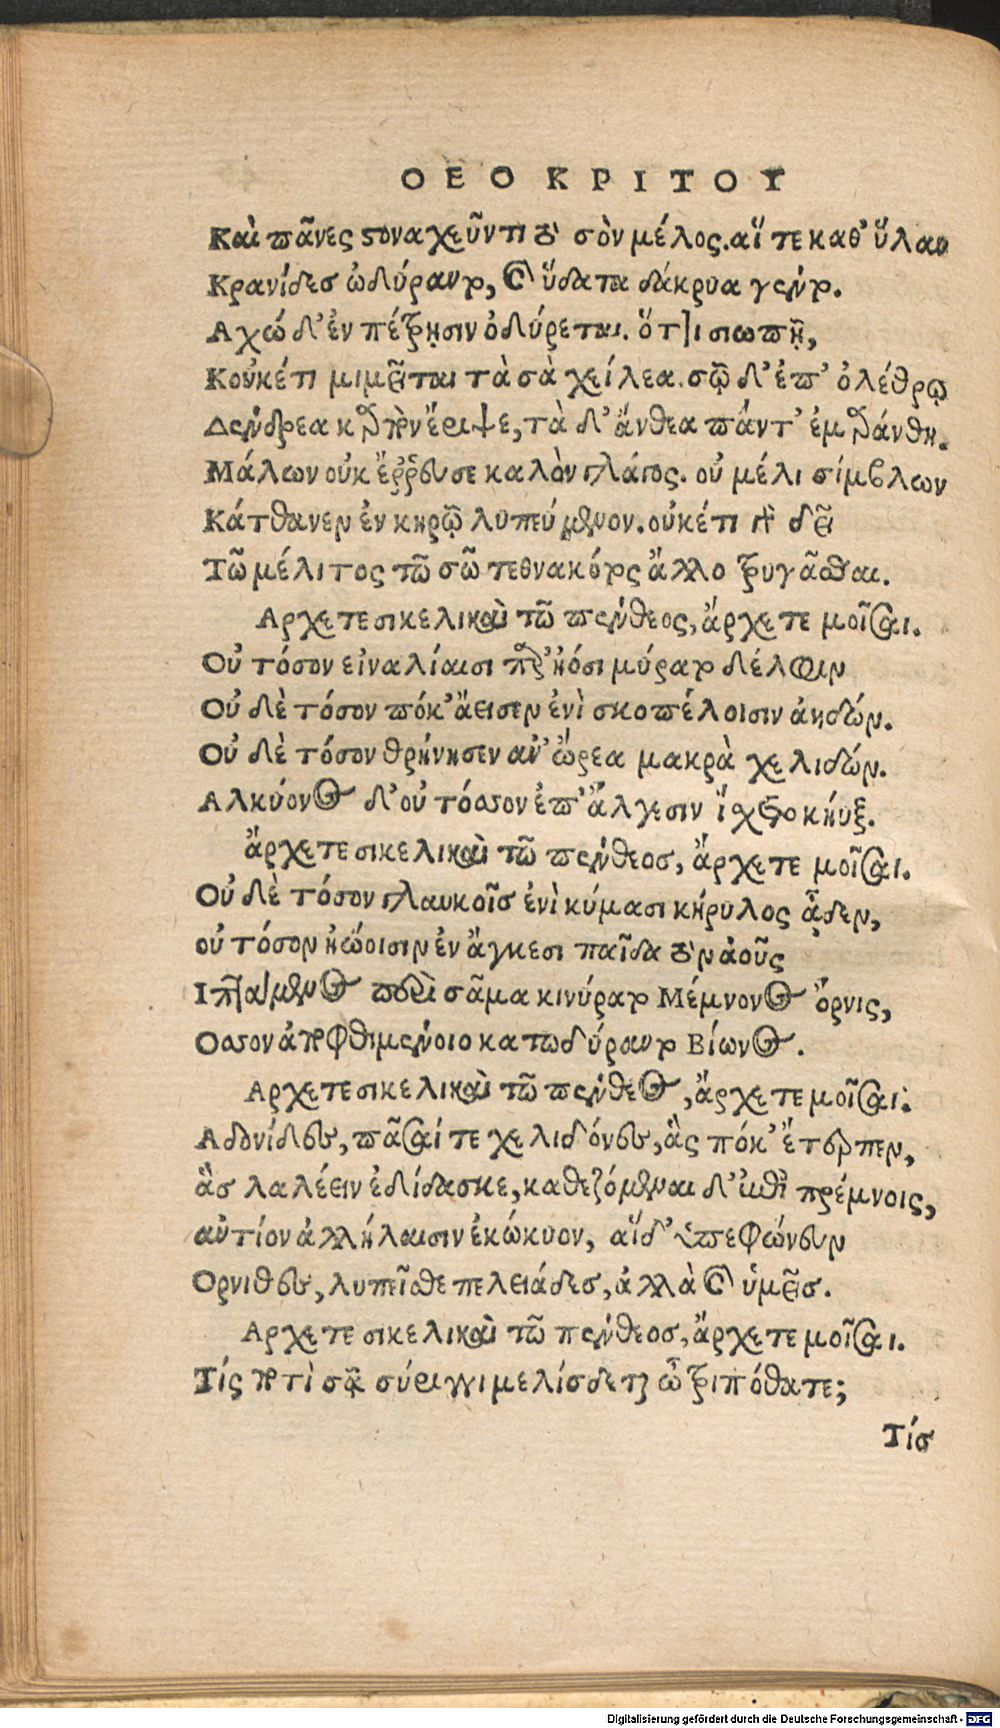 ΘΕΟΚΡΙΤΟΥ
Καὶ πᾶνες στοναχεῦντι τὸ σὸν μέλος. αἵ τε καθ' ὕλαν
Κρανίδες ὠδύραντο, καὶ ὕδατα δάκρυα γένοντο.
Αχώ δ' ἐν πέτρῃσιν ὀδύρεται. ὅττι σιωπῇ,
Κοὐκέτι μιμεῖται τὰ σὰ χείλεα. σῷ δ' ἐπ' ὀλέθρῳ
Δένδρεα καρπὸν ἔριψε, τὰ δ' ἄνθεα πάντ' ἐμαράνθη.
Μάλων οὐκ ἔῤῥευσε καλὸν γλάγος. οὐ μέλι σίμβλων
Κάτθανεν ἐν κηρῷ λυπεύμενον. οὐκέτι γὰρ δεῖ
Τῶ μέλιτος τῶ σῶ τεθνακότος ἄλλο τρυγᾶσθαι.
Αρχετε σικελικαὶ τῶ πένθεος, ἄρχετε μοῖσαι.
Οὐ τόσον εἰναλίαισι παρ' ἠόσι μύρατο δέλφιν
Οὐδὲ τόσον πόκ' ἄεισεν ἐνὶ σκοπέλοισιν ἀηδών.
Οὐδὲ τόσον θρήνησεν ἀν' ὤρεα μακρὰ χελιδών.
Αλκύονος δ' οὐ τόσσον ἐπ' ἄλγεσιν ἴαχε κήυξ.
ἄρχετε σικελικαὶ τῶ πένθεοσ, ἄρχετε μοῖσαι.
Οὐδὲ τόσον γλαυκοῖσ ἐνὶ κύμασι κήρυλος ᾆδεν,
οὐ τόσον ἠῴοισιν ἐν ἄγκεσι παῖδα τὸν ἀοῦς
Ιπτάμενος περὶ σᾶμα κινύρατο Μέμνονος ὄρνις,
Οσσον ἀποφθιμένοιο κατωδύραντο Βίωνος.
Αρχετε σικελικαὶ τῶ πένθεος, ἄρχετε μοῖσαι.
Αδονίδευς, πᾶσαί τε χελιδόνευς, ἃς πόκ' ἔτερπεν,
ἃσ λαλέειν ἐδίδασκε, καθεζόμεναι δ' ἐπὶ πρέμνοις,
αὐτίον ἀλλήλαισιν ἐκώκυον, αἵδ' ὑπεφώνευν
Ορνιθευς, λυπεῖσθε πελειάδεσ, ἀλλὰ καὶ ὑμεῖσ.
Αρχετε σικελικαὶ τῶ πένθεοσ, ἄρχετε μοῖσαι.
Τίς ποτὶ σᾷ σύριγγι μελίσδεται ὦ τριπόθατε;
Τίσ
Digitalisierung gefördert durch die Deutsche Forschungsgemeinschaft - DFG